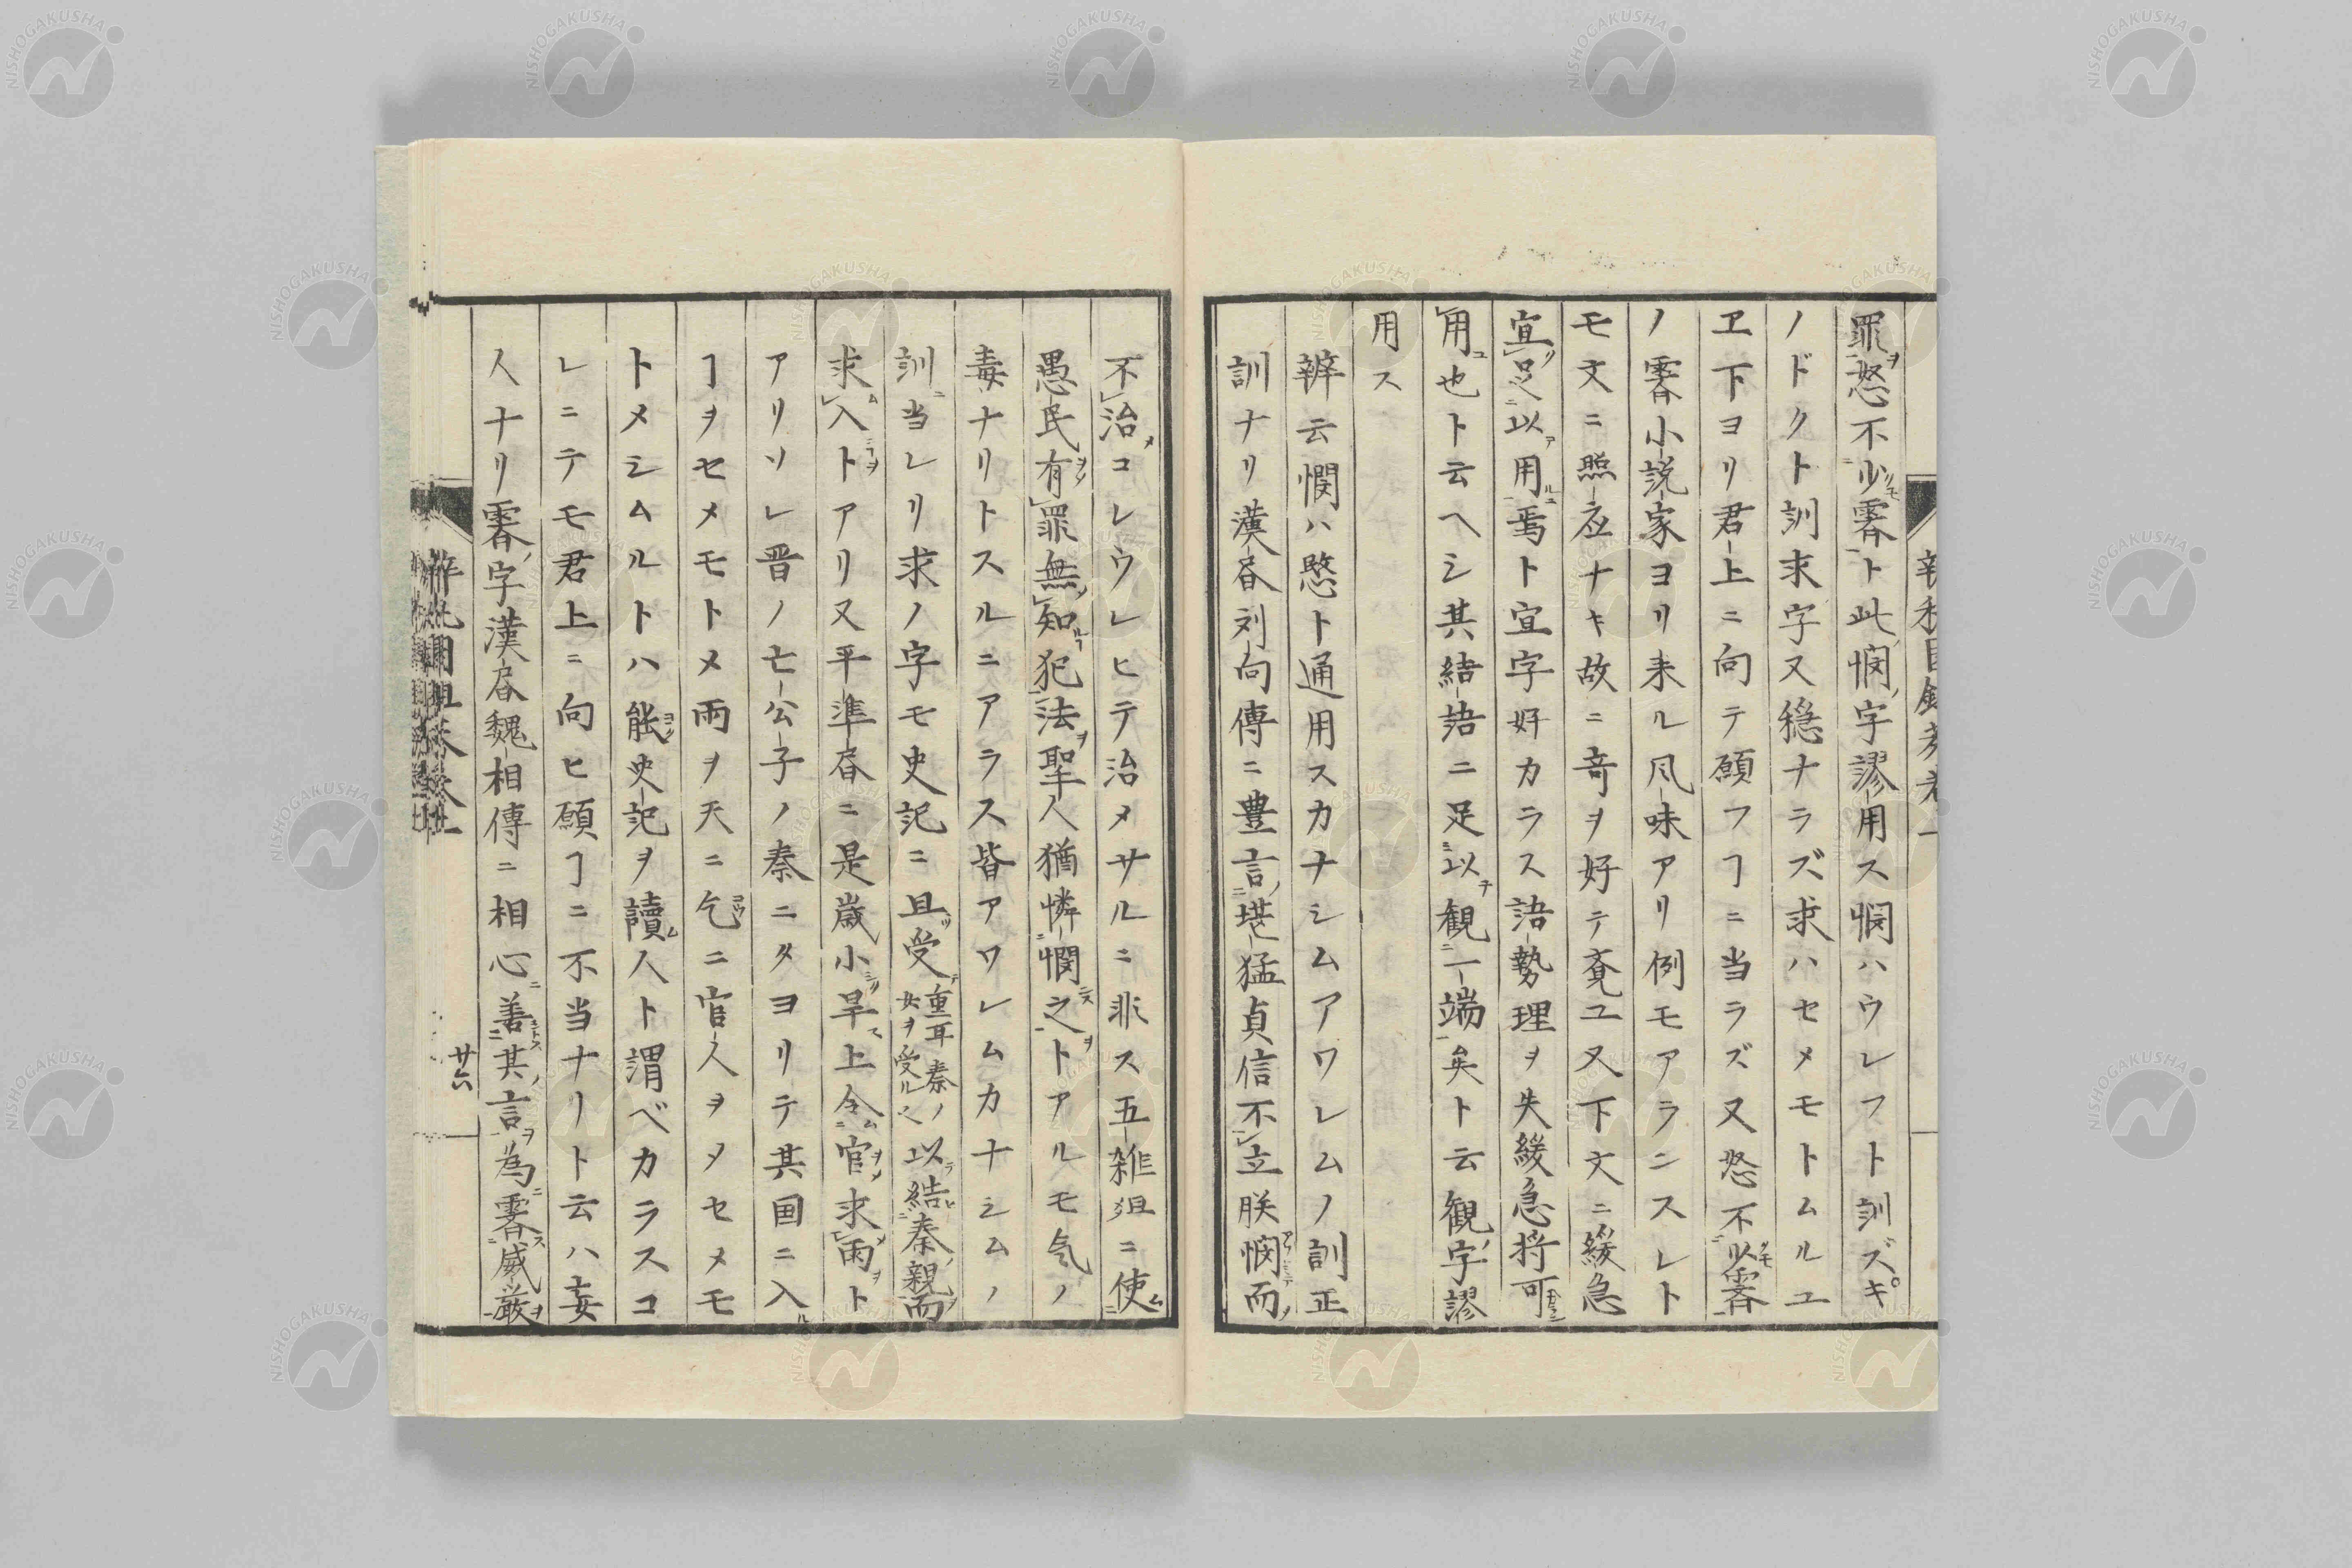 罪怒不少霽ト此憫字謬用ス憫ハウレフト訓ズキ
ノドクト訓求字又穏ナラズ求ハセメモトムルユ
ヱ下ヨリ君上ニ向テ願フヿニ当ラズ又怒不少霽
ノ霽小説家ヨリ来ル風味アリ例モアランスレト
モ文ニ照応ナキ故ニ奇ヲ好テ聞ユ又下文ニ緩急
宜足以用焉ト宜字好カラス語勢理ヲ失緩急将可
用也ト云ヘシ其結語ニ足以観一端矣ト云観字謬
用ス
辨云憫ハ愍ト通用スカナシムアワレムノ訓正
訓ナリ漢書刘向傳ニ豊言堪猛貞信不立朕憫而
不治コレウレヒテ治メサルニ非ス五雑俎ニ使
愚民有罪無知犯法聖人猶憐憫之トアルモ気ノ
毒ナリトスルニアラス皆アワレムカナシムノ
訓当レリ求ノ字モ史記ニ且受重耳秦ノ女ヲ受ル以結秦親而
求入トアリ又平準書ニ是歳小旱上令官求雨ト
アリソレ晋ノ亡公子ノ秦ニタヨリテ其国ニ入
ヿヲセメモトメ雨ヲ天ニ乞ニ官人ヲメセメモ
トメシムルトハ能史記ヲ讀人ト謂ベカラスコ
レニテモ君上ニ向ヒ願ヿニ不当ナリト云ハ妄
人ナリ霽字漢書魏相傳ニ相心善其言為霽威厳
廿六